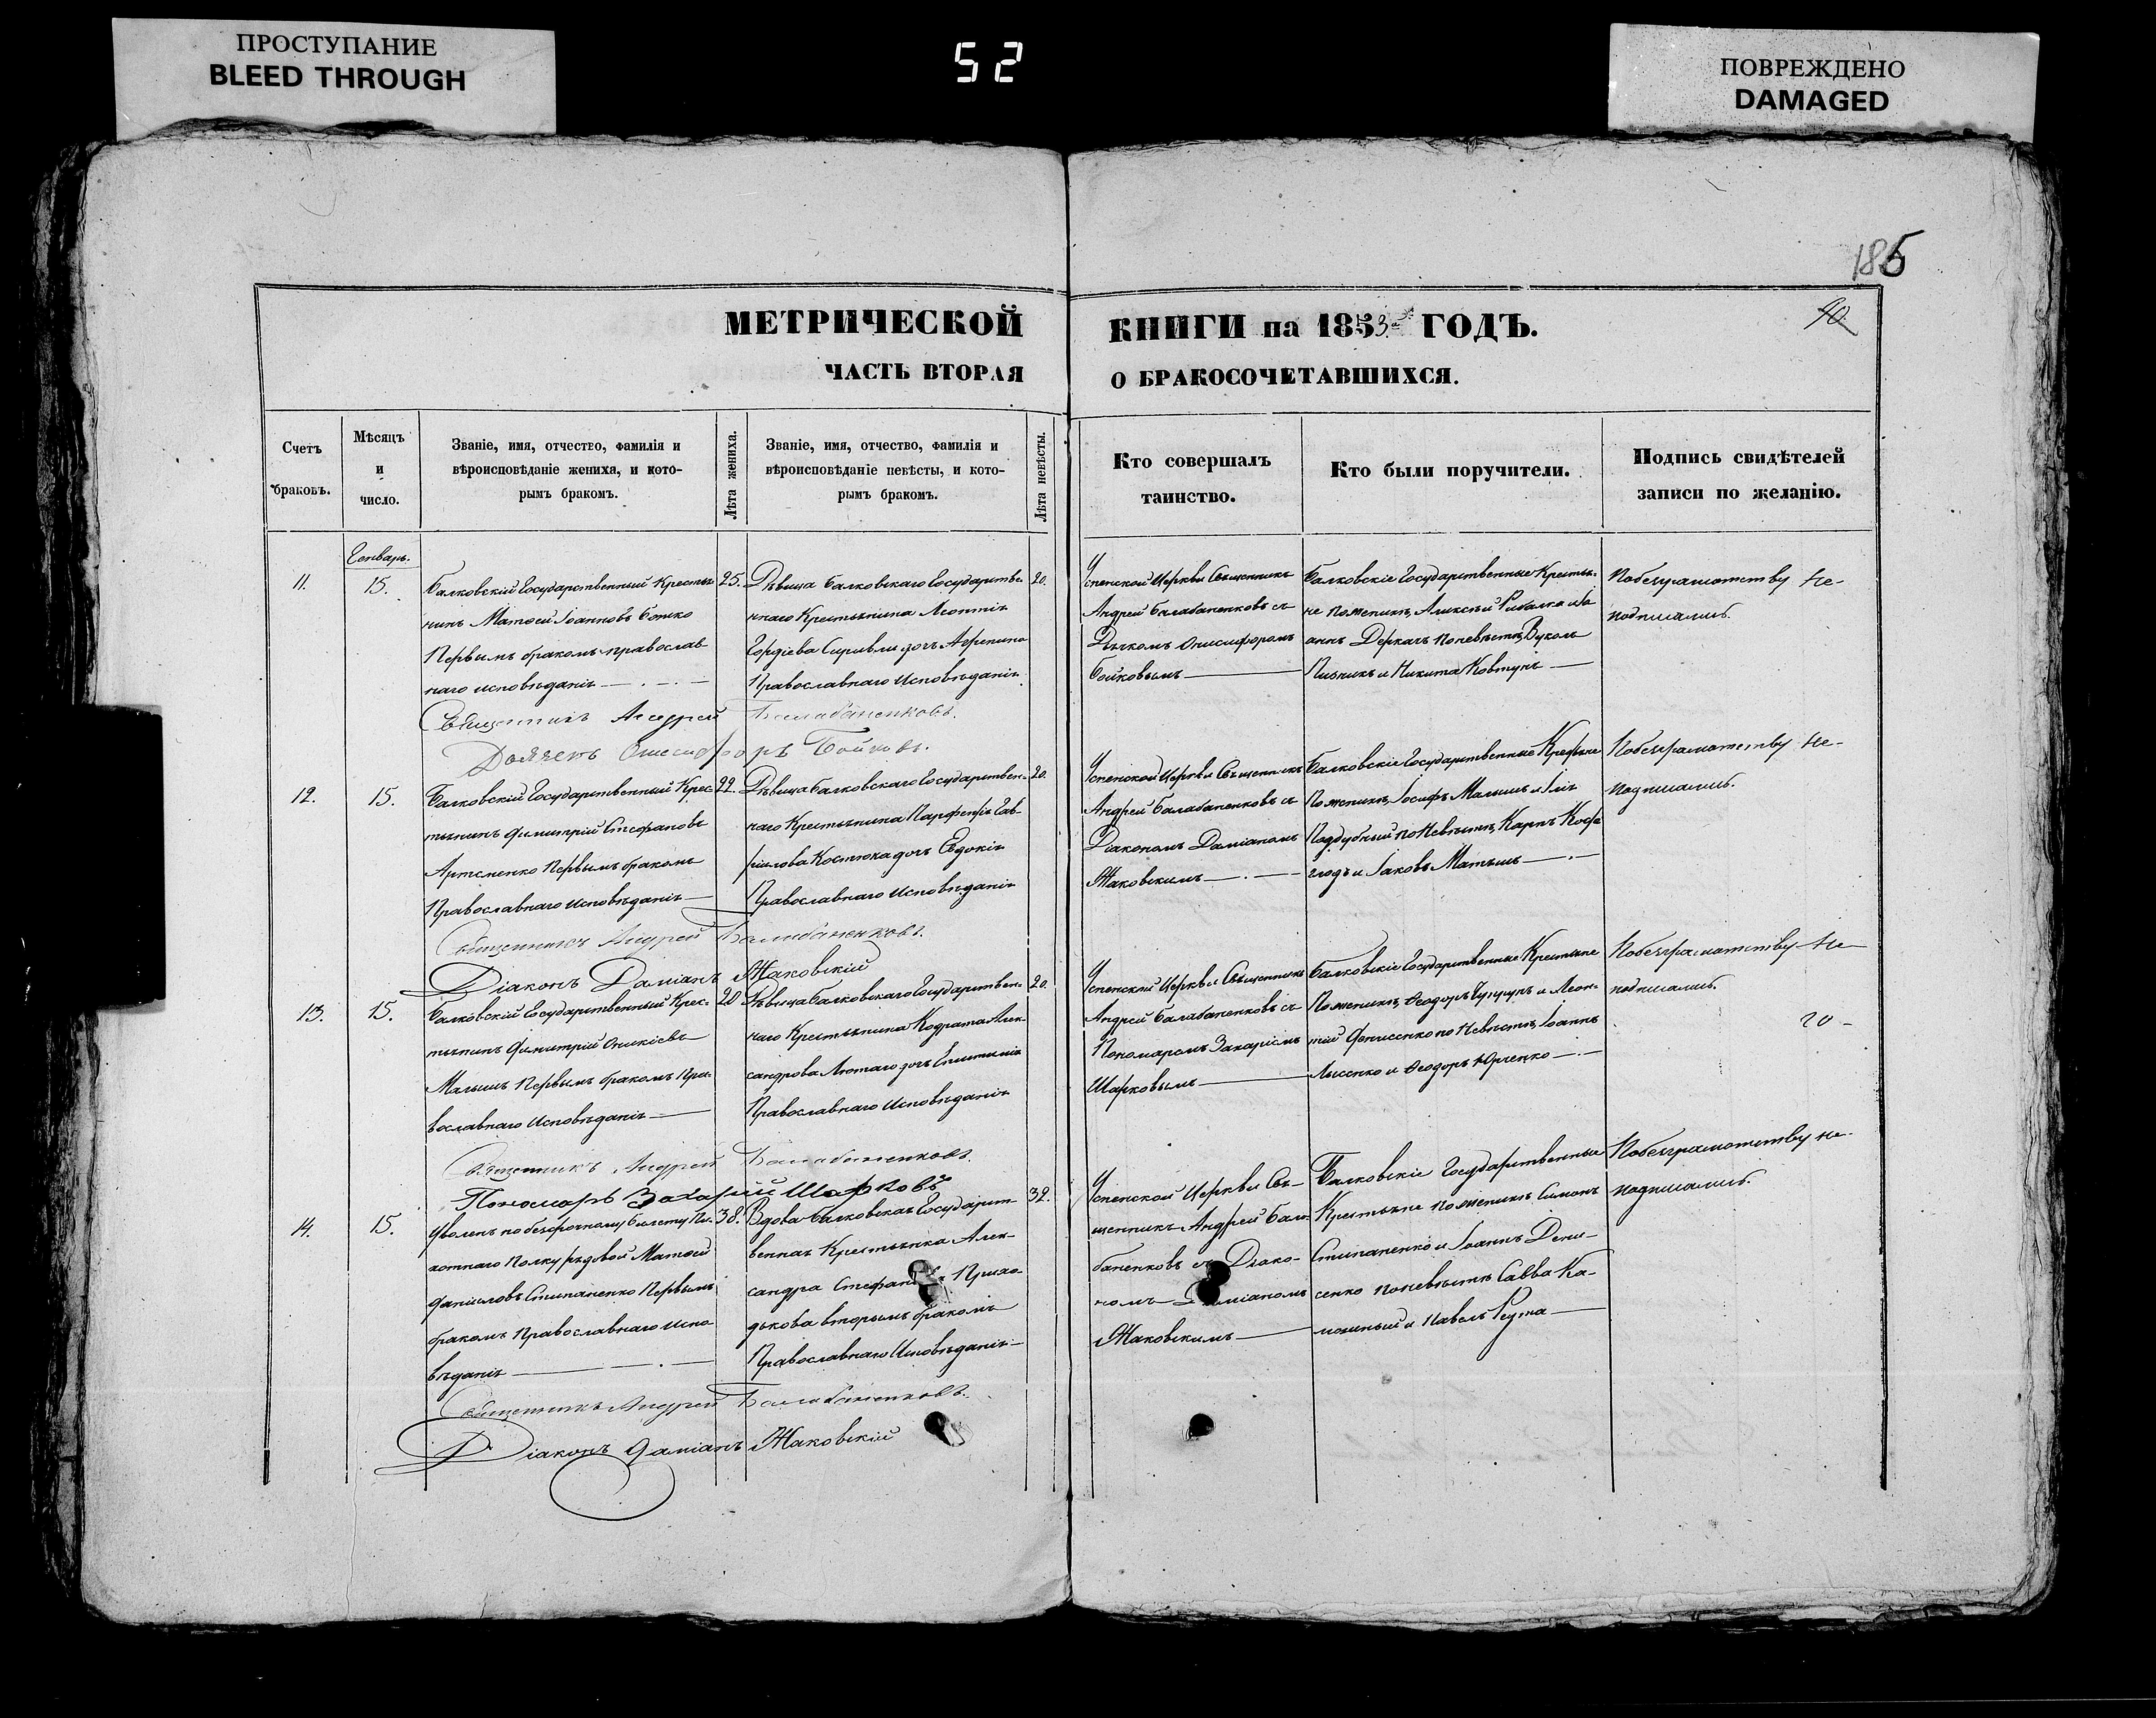 ПРОСТУПАНИЕ
BLEED THROUGH
52
ПОВРЕЖДЕНО
DAMAGED
185
40.
МЕТРИЧЕСКОЙ КНИГИ на 1853 ГОДЪ.
ЧАСТЬ ВТОРАЯ О БРАКОСОЧЕТАВШИХСЯ.
Счетъ
браковъ.
Мѣсяцъ
и
число.
Званіе, имя, отчество, фамилія и
вѣроисповѣданіе жениха, и кото-
рымъ бракомъ.
Лѣта жениха.
Званіе, имя, отчество, фамилія и
вѣроисповѣданіе невѣсты, и кото-
рымъ бракомъ.
Лѣта невѣсты.
Кто совершалъ
таинство.
Кто были поручители.
Подпись свидѣтелей
записи по желанію.
Генварь.
11.
15.
Балковскій Государственный Крестья-
нинъ Матѳей Іоанновъ Ботко
Первымъ бракомъ православ-
наго исповѣданія
25.
Дѣвица Балковскаго Государстве-
ннаго Крестьянина Леонтія
Гордіева дочь
Православнаго Исповѣданія
20.
Успенской Церкви Священникъ
Андрей Балабаненковъ съ
Дьячкомъ Онисифоромъ
Бойковымъ
Балковскіе Государственные Крестья-
не по женихѣ, Алексѣй Рибалка и Іо-
аннъ Деркачъ по невѣстѣ, Вуколъ
и Никита Ковтунъ
По безграмотству не
подписались.
Священникъ Андрей Балабаненковъ.
Дьячекъ Онисифоръ Бойковъ.
12.
15.
Балковскій Государственный Крес-
тьянинъ Димитрій Стефановъ
Артеменко Первымъ бракомъ
Православнаго Исповѣданія
22.
Дѣвица Балковскаго Государствен-
наго Крестьянина Парфенія Гав-
ріилова Костюка дочь Евдокія
Православнаго Исповѣданія
20.
Успенской Церкви Священникъ
Андрей Балабаненковъ съ
Діакономъ Даміаномъ
Жаковскимъ
Балковскіе Государственные Крестьяне
По женихѣ, Іосифъ Малышъ и Илія
Поддубный по Невѣстѣ, Карпъ
и Іаковъ
По безграмотству не
подписались.
Священникъ Андрей Балабаненковъ.
Діаконъ Даміанъ Жаковскій
13.
15.
Балковскій Государственный Крес-
тьянинъ Димитрій Оникіевъ
Малышъ Первымъ бракомъ Пра-
вославнаго Исповѣданія
20
Дѣвица Балковскаго Государствен-
наго Крестьянина Кодрата Алек-
сандрова Лютаго дочь
Православнаго Исповѣданія
20.
Успенской Церкви Священникъ
Андрей Балабаненковъ съ
Пономаремъ Захаріемъ
Шарковымъ
Балковскіе Государственные Крестьяне
По женихѣ, Ѳеодоръ и Леон-
тій Денисенко по Невѣстѣ, Іоаннъ
Лысенко и Ѳеодоръ Юрченко
По безграмотству не
подписались.
20 -
Священникъ Андрей Балабаненковъ.
Пономарь Захарій Шарковъ
14.
15.
Уволенъ по безсрочному билету Пѣ-
хотнаго Полку рядовой Матѳей
Даниловъ Степаненко Первымъ
бракомъ Православнаго Испо-
вѣданія
38.
Вдова Балковская Государст-
венная Крестьянка Алек-
сандра Стефанова Прихо-
дькова вторымъ бракомъ
Православнаго Исповѣданія
32.
Успенской Церкви Свя-
щенникъ Андрей Бала-
баненковъ съ Діако-
номъ Даміаномъ
Жаковскимъ
Балковскіе Государственные
Крестьяне по женихѣ Симонъ
Степаненко и Іоаннъ Дени-
сенко по невѣстѣ Савва Ка-
и Павелъ
По безграмотству не
подписались.
Священникъ Андрей Балабаненковъ.
Діаконъ Даміанъ Жаковскій